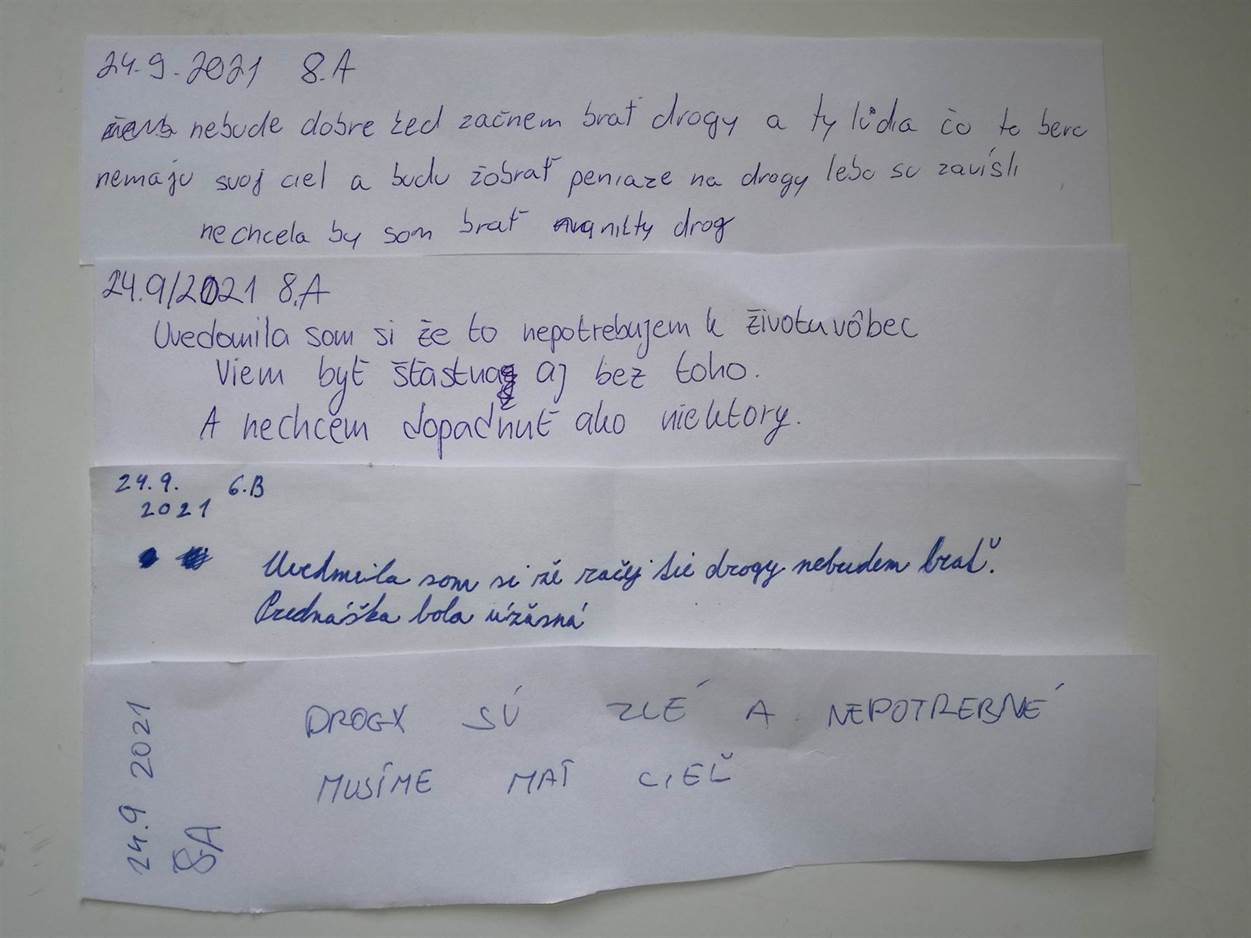 24.9.2021 8.A
nebude dobre keď začnem brať drogy a ty lúdia čo to berú
nemaju svoj ciel a budu žobrať peniaze na drogy lebo su zavísli
nechcela by som brať nikty drog
24.9/2021 8.A
Uvedomila som si že to nepotrebujem k životu vôbec
Viem byť šťastna aj bez toho.
A nechcem dopadnuť ako niektory.
24.9. 6.B
2021
Uvedmila som si že račej tie drogy nebudem brať.
Prednáška bola úžasná
24.9 2021
8A
DROGY SÚ ZLÉ A NEPOTREBNÉ
MUSÍME MAŤ CIEĽ